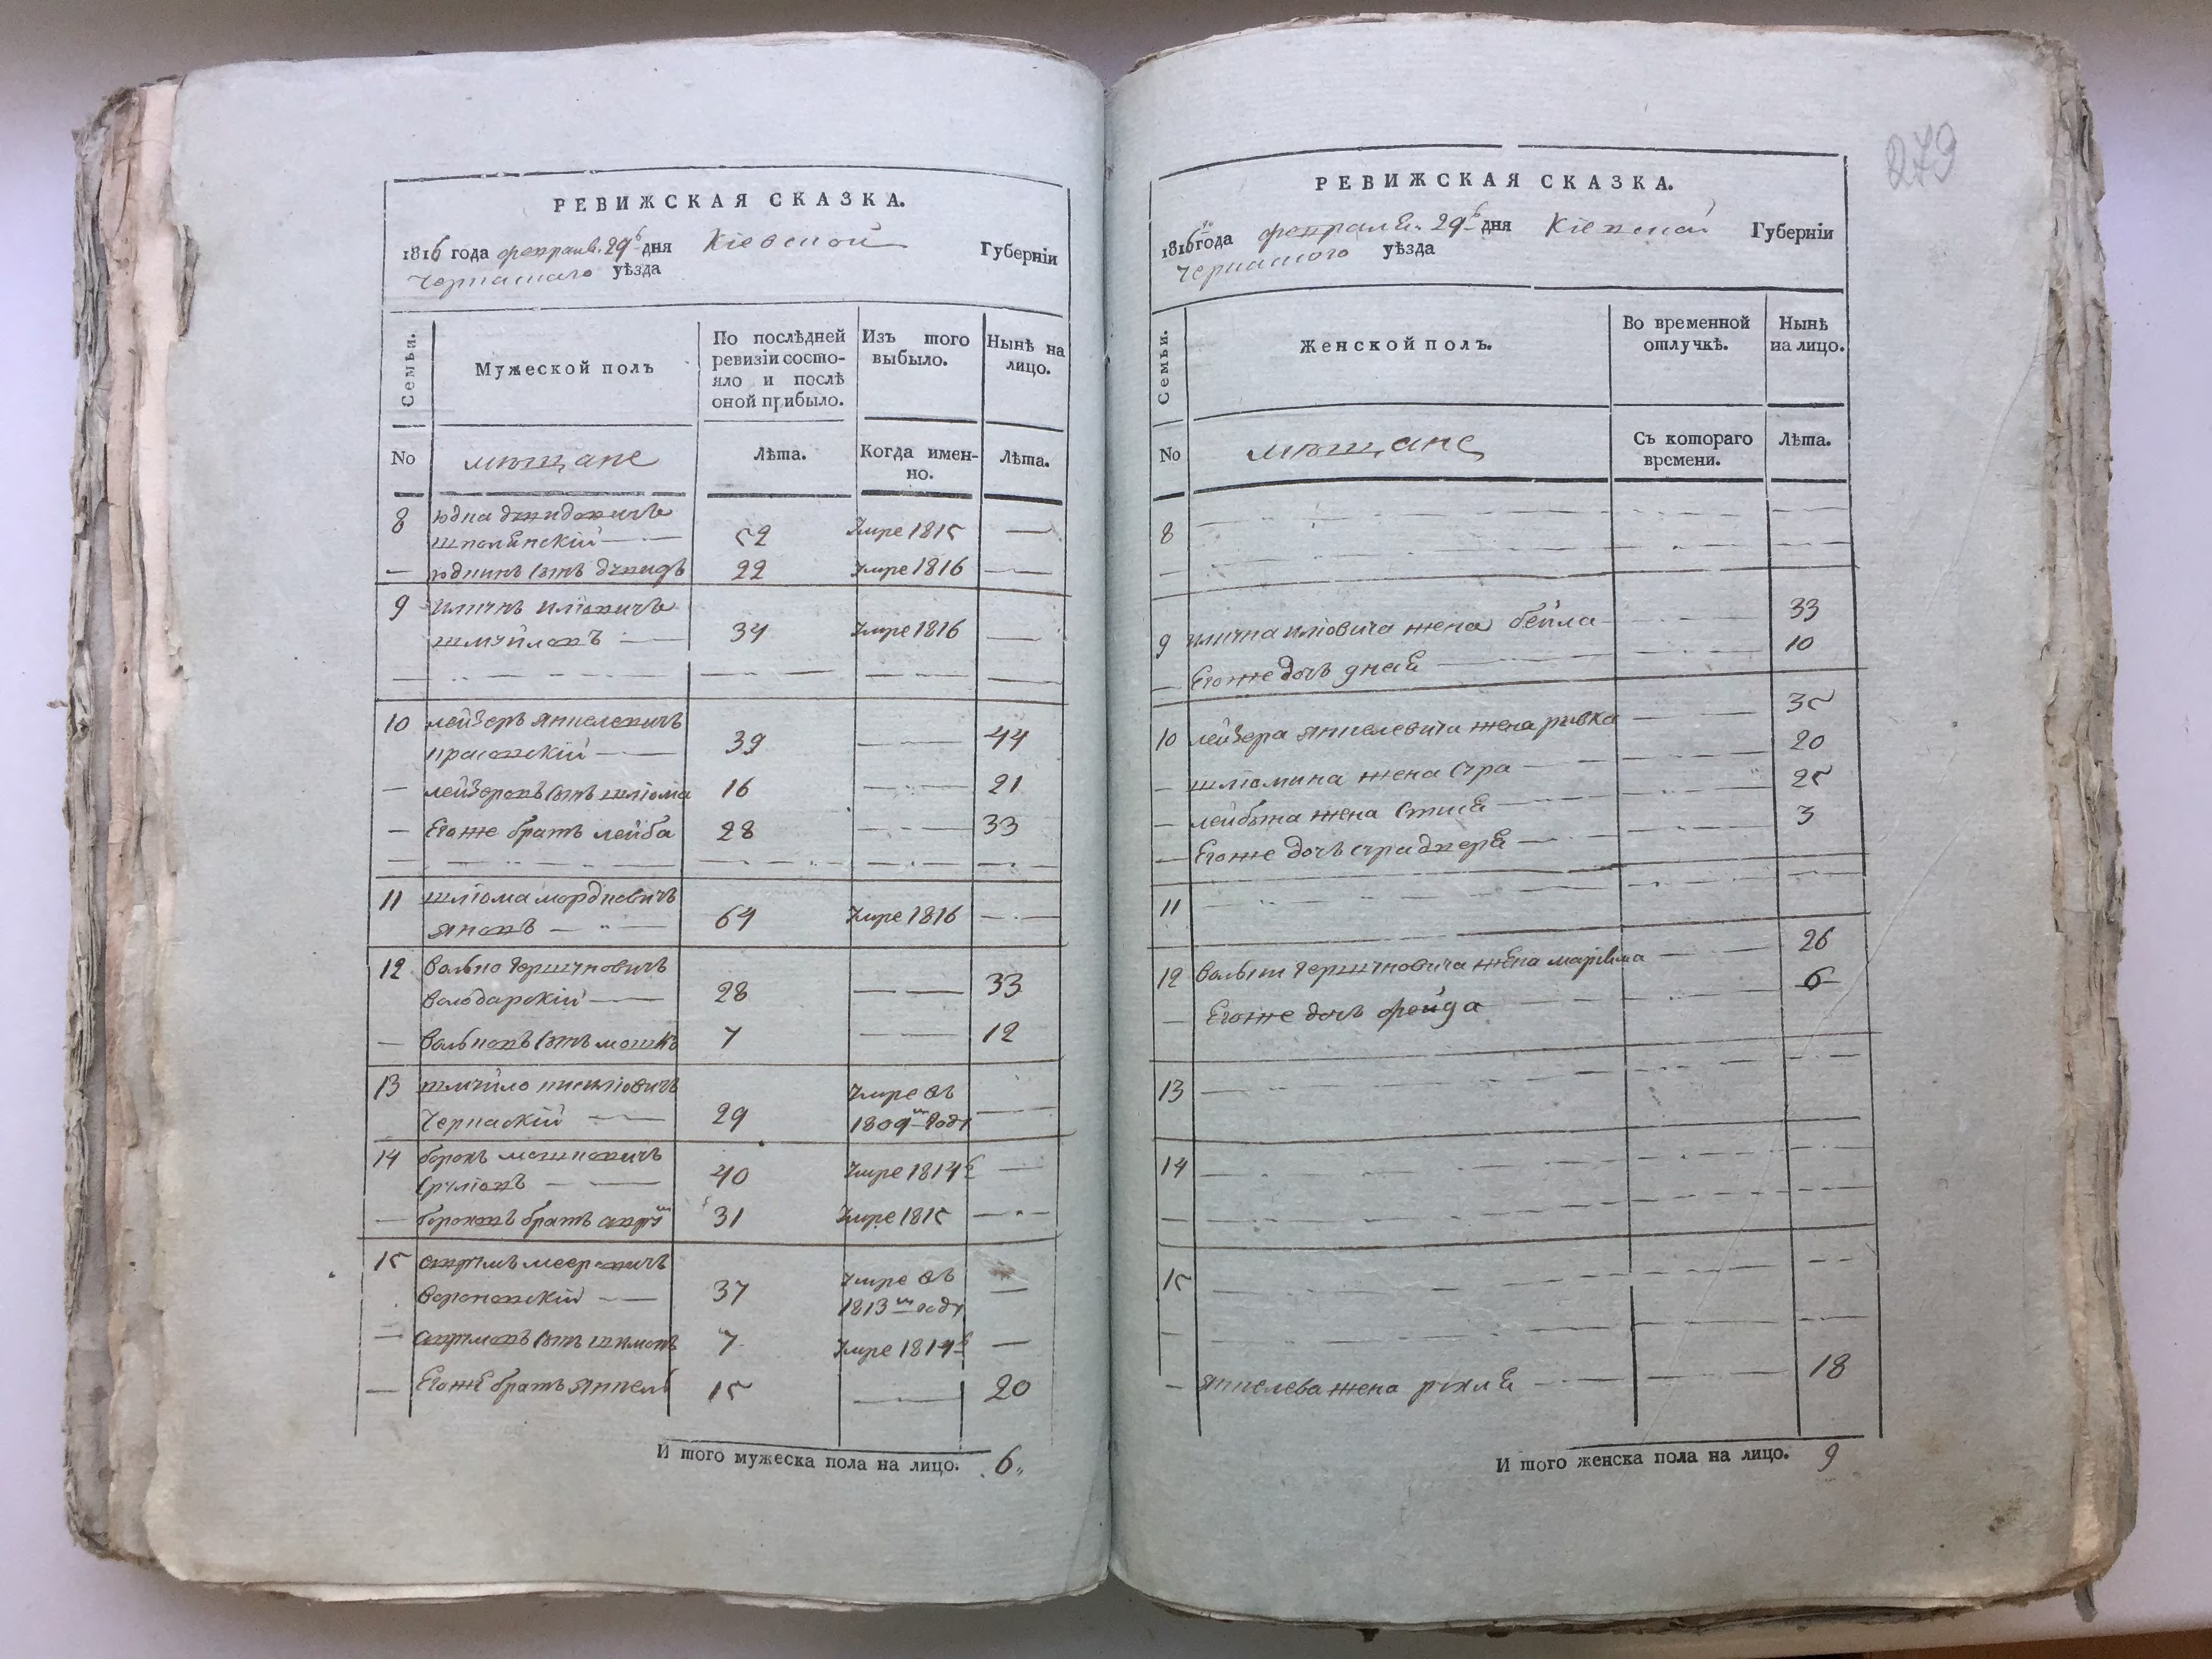 РЕВИЖСКАЯ СКАЗКА.
1816 года февраля 29 дня Кіевской Губерніи
Черкаского уѣзда
Семьи.
Мужеской полъ
По послѣдней ревизіи состо-
яло и послѣ
оной прибыло.
Изъ того
выбыло.
Нынѣ на
лицо.
No
мѣщане
Лѣта.
Когда имен-
но.
Лѣта.
8 юдка
шполянскій 52 Умре 1815
юдкинъ сынъ 22 Умре 1816
9
34 Умре 1816
10 лейзеръ янкелевичъ
39 44
лейзеровъ сынъ шліома 16 21
Егоже братъ лейба 28 33
11 шліома мордковичъ
64 Умре 1816
12 волько гершковичъ
володарскій 28 33
вольковъ сынъ мошко 7 12
13 шмуйло
Черкаскій 29 Умре въ
1809м году
14 борохъ мошковичъ
40 Умре 1814
братъ 31 Умре 1815
15 аврумъ мееровичъ
вороновскій 37 Умре въ
1813м году
аврумовъ сынъ шимонъ 7 Умре 1814
Егоже братъ янкель 15 20
И того мужеска пола на лицо. 6
279
РЕВИЖСКАЯ СКАЗКА.
1816го года февраля 29 дня Кіевской Губерніи
Черкаского уѣзда
Семьи.
Женской полъ.
Во временной
отлучкѣ.
Нынѣ
на лицо.
No
мѣщане
Съ котораго
времени.
Лѣта.
8
9 жена бейла 33
Егоже дочь 10
10 лейзера янкелевича жена ривка 35
шліомина жена сура 20
лейбина жена 25
Егоже дочь 3
11
12 гершковича жена 26
Егоже дочь фрейда 6
13
14
15
янкелева жена рухля 18
И того женска пола на лицо. 9